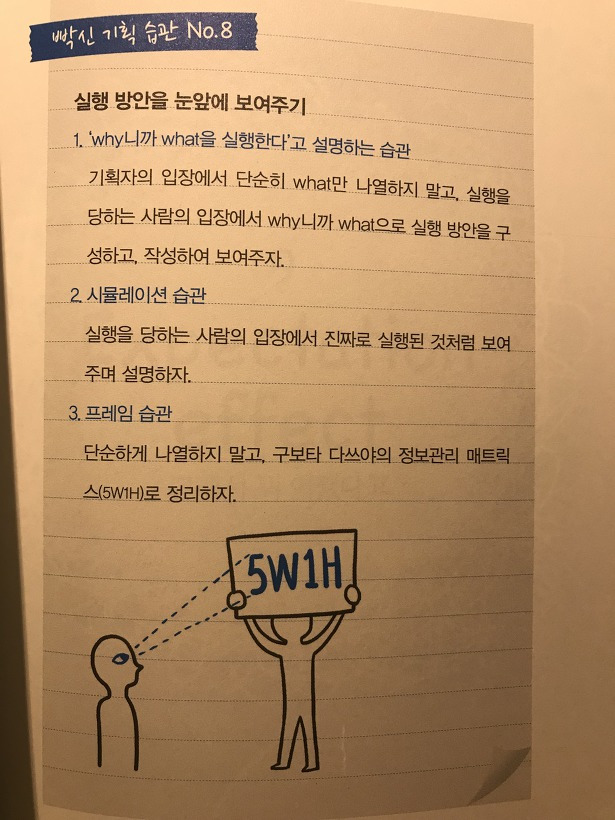 빡신 기획 습관 No.8
실행 방안을 눈앞에 보여주기
1. ‘why니까 what을 실행한다’고 설명하는 습관
기획자의 입장에서 단순히 what만 나열하지 말고, 실행을
당하는 사람의 입장에서 why니까 what으로 실행 방안을 구
성하고, 작성하여 보여주자.
2. 시뮬레이션 습관
실행을 당하는 사람의 입장에서 진짜로 실행된 것처럼 보여
주며 설명하자.
3. 프레임 습관
단순하게 나열하지 말고, 구보타 다쓰야의 정보관리 매트릭
스(5W1H)로 정리하자.
5W1H